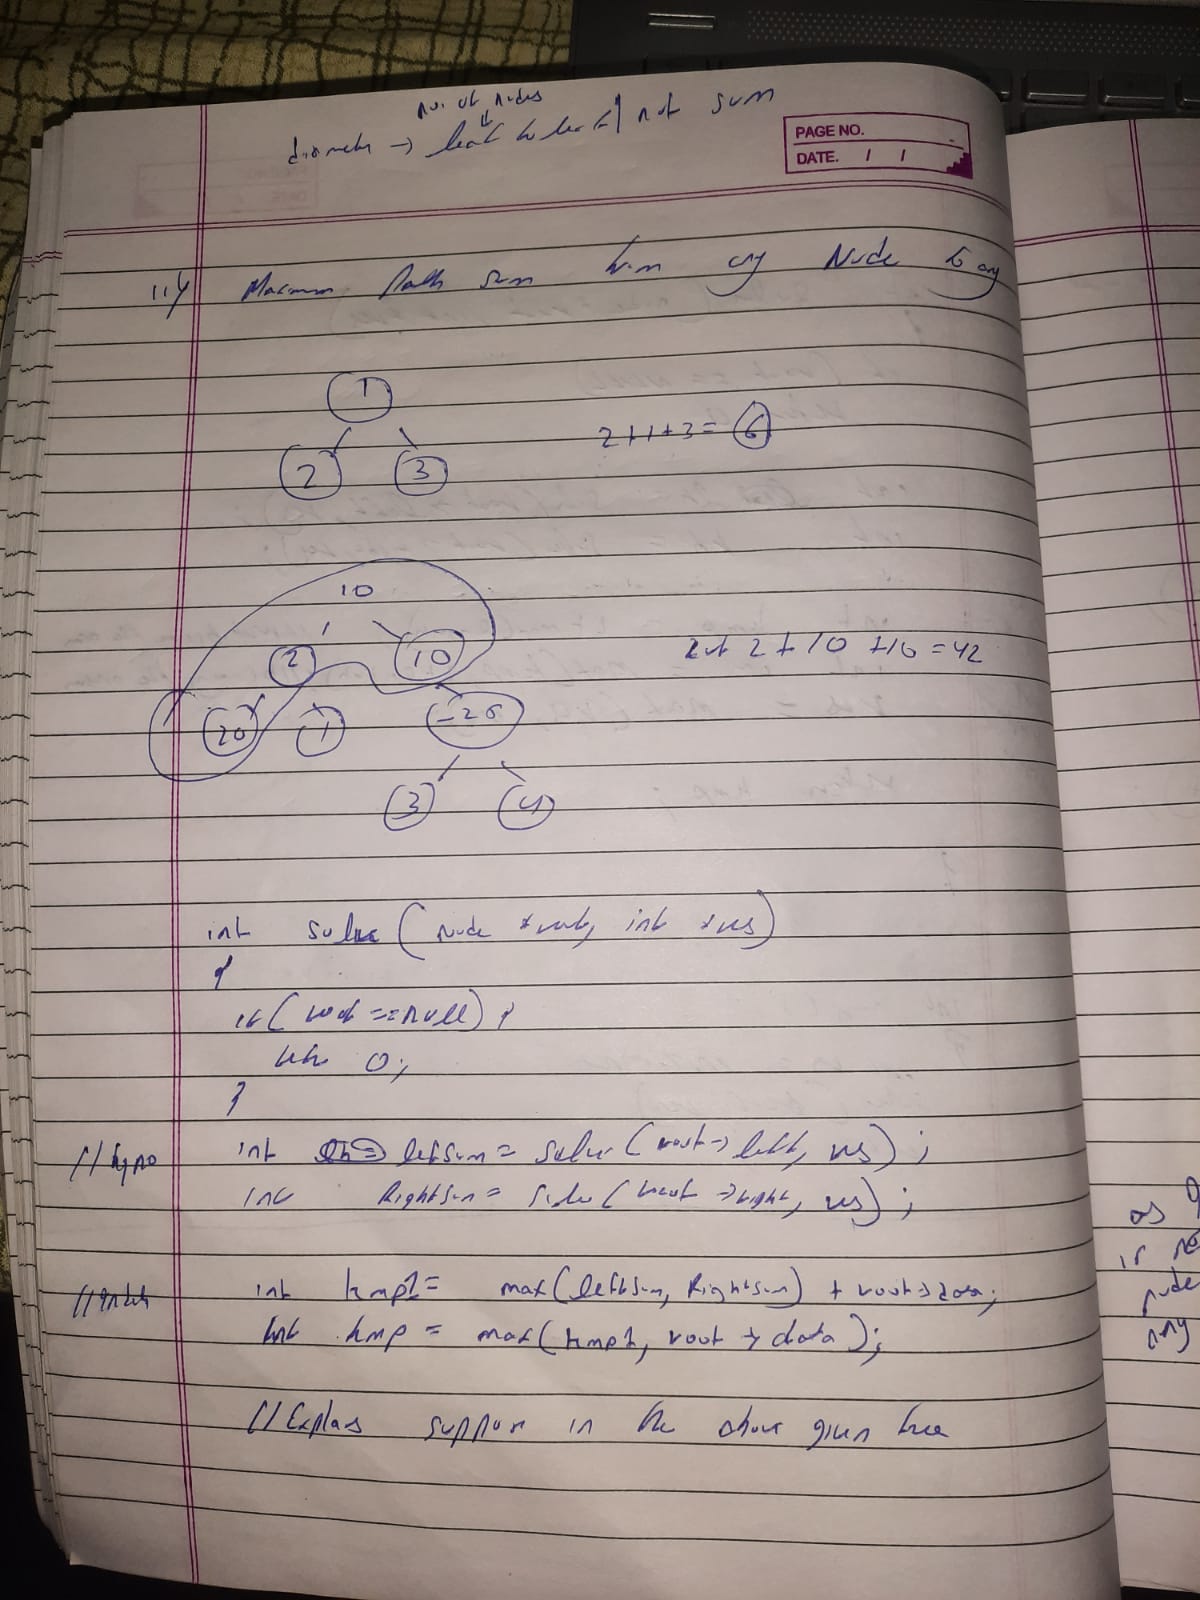 no. of nodes
diameter → leaf to leaf not sum
PAGE NO.
DATE. / /
11) Maximum Path sum from any Node to any
1
2 3
2+1+3= 6
10
2 10
20 1 -25
3 4
2+10+10=42
int solve(Node *root, int *res)
{
if(root==NULL) {
return 0;
}
//hypo int leftSum= solve(root->left, res);
int RightSum= solve(root->right, res);
int temp1= max(leftSum, RightSum) + root->data;
int temp = max(temp1, root->data);
//Explan suppose in the above given tree
as
is
node
any